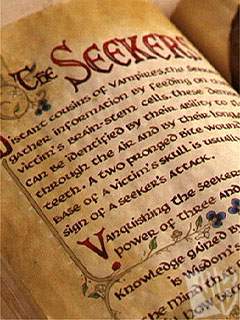 The SEEKERS
Distant cousins of vampires, the Seekers
gather information by feeding on
victim's brain-stem cells. these
can be identified by their ability to
through the air and by their
teeth. A two pronged bite wound
base of a victim's skull is usually
sign of a seeker's attack.
Vanquishing the seekers
power of three and
knowledge gained by
is wisdom's
the mind that